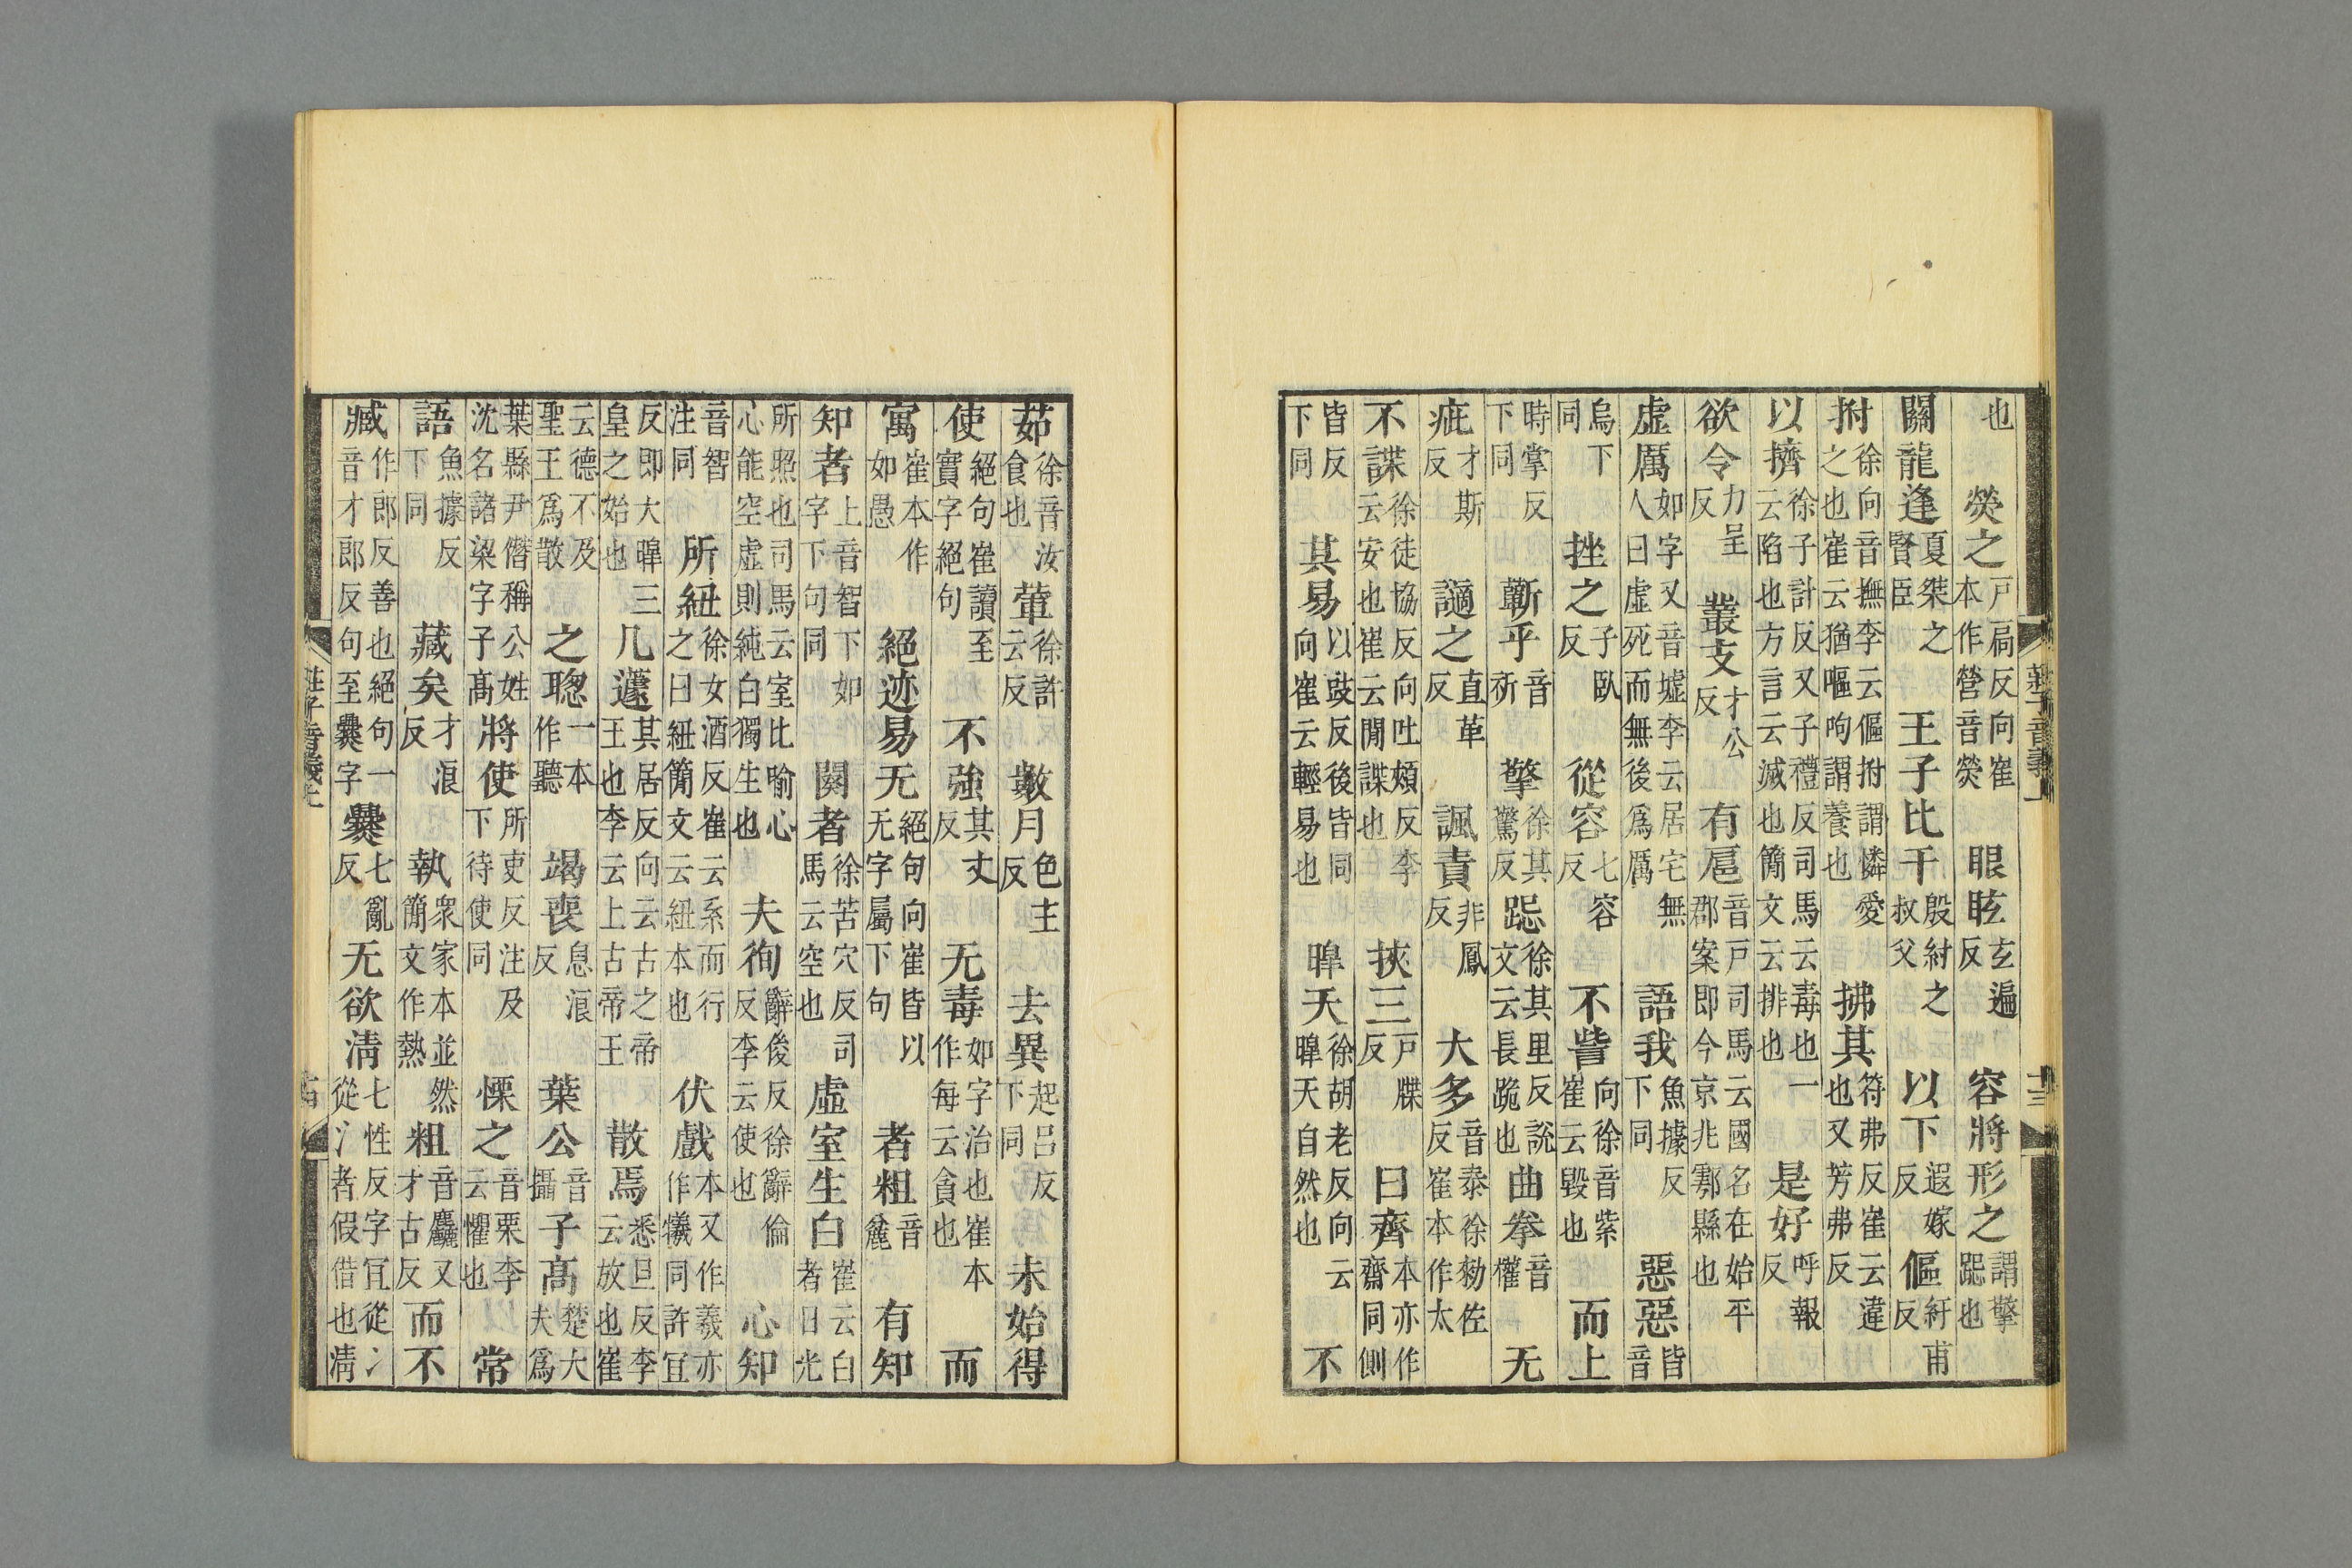 也 熒之戶扃反向崔本作營音熒 眼眩玄遍反 容將形之謂擎跽也
關龍逢夏桀之賢臣 王子比干殷紂之叔父 以下遐嫁反 傴紆甫反
拊徐向音撫李云傴拊謂憐愛之也崔云猶嘔呴謂養也 拂其符弗反崔云違也又芳弗反
以擠徐子計反又子禮反司馬云毒也一云陷也方言云滅也簡文云排也 是好呼報反
欲令力呈反 叢支才公反 有扈音戶司馬云國名在始平郡案即今京兆鄠縣也
虛厲如字又音墟李云居宅無人曰虛死而無後爲厲 語我魚據反下同 惡惡皆音
烏下同 挫之子臥反 從容七容反 不訾向徐音紫崔云毀也 而上
時掌反下同 蘄乎音祈 擎徐其驚反 跽徐其里反說文云長跪也 曲拳音權 无
疵才斯反 讁之直革反 諷責非鳳反 大多音泰徐勑佐反崔本作太
不諜徐徒協反向吐頰反李云安也崔云閒諜也 挾三戶牒反 曰齊本亦作齋同側
皆反下同 其易以豉反後皆同向崔云輕易也 暭天徐胡老反向云暭天自然也 不
莊子音義上 十三
茹徐音汝食也 葷徐許云反 數月色主反 去異起呂反下同 未始得
使絕句崔讀至實字絕句 不強其丈反 无毒如字治也崔本作每云貪也 而
寓崔本作如愚 絕迹易无絕句向崔皆以无字屬下句 者粗音麄 有知
知者上音智下如字下句同 闋者徐苦穴反司馬云空也 虛室生白崔云白者日光
所照也司馬云室比喻心心能空虛則純白獨生也 夫徇辭俊反徐辭倫反李云使也 心知
音智注同 所紐徐女酒反崔云系而行之曰紐簡文云紐本也 伏戲本又作羲亦作犧同許宜
反即大暭三皇之始也 几蘧其居反向云古之帝王也李云上古帝王 散焉悉旦反李云放也崔
云德不及聖王爲散 之聰一本作聽 竭喪息浪反 葉公音攝 子髙楚大夫爲
葉縣尹僭稱公姓沈名諸梁字子髙 將使所吏反注及下待使同 慄之音栗李云懼也 常
語魚據反下同 藏矣才浪反 執衆家本並然簡文作熱 粗音麤又才古反 而不
臧作郎反善也絕句一音才郎反句至爨字 爨七亂反 无欲凊七性反字宜從冫從氵者假借也凊
莊子音義上 十四